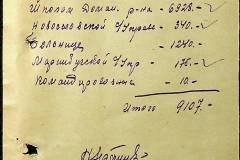 Школам Доман. р-на - 6928.-
Новосельской с/Управе - 340.-
Больнице - 1240.-
с/Упр - 175.-
Командировочные - 10.-
Итого 9107.-